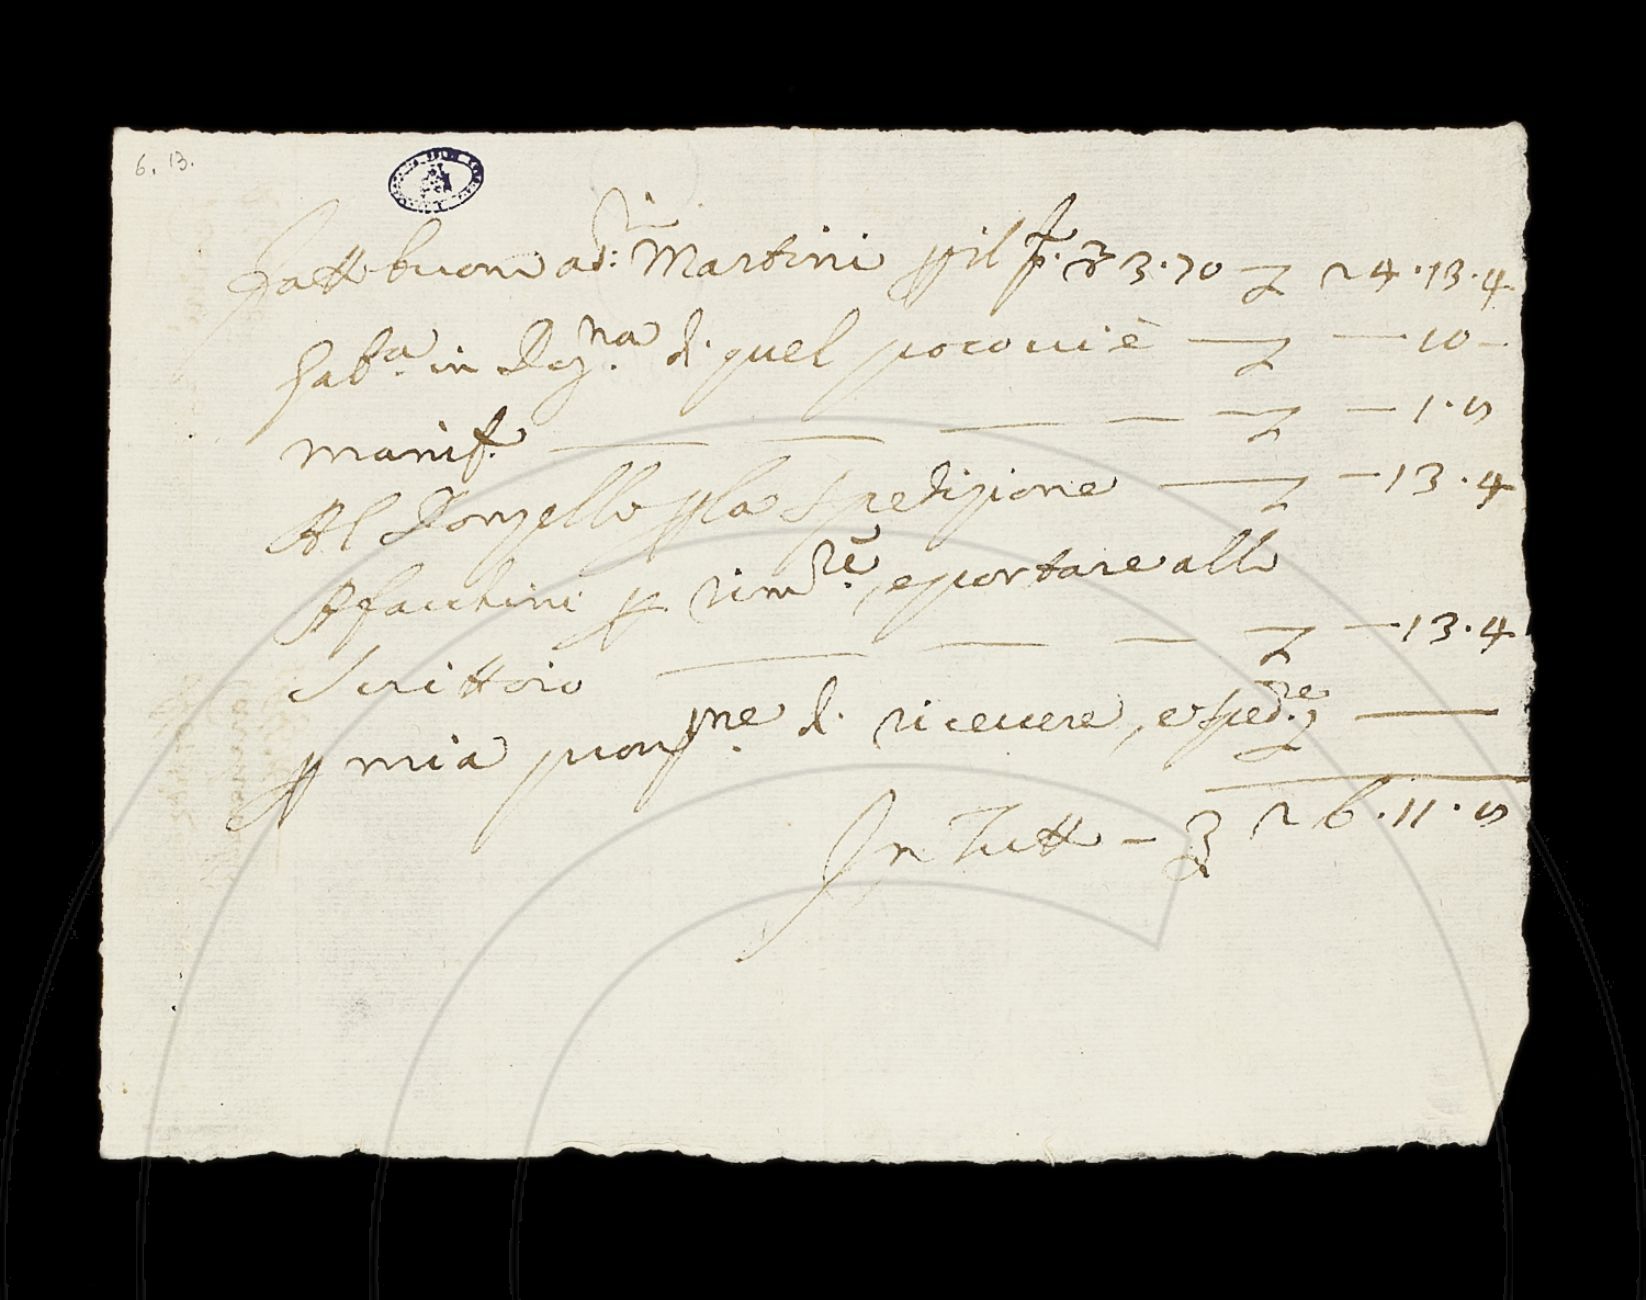 6. 13.
Fatto buoni a d: Martini p il p. 3.70 — 24.13.4
Gab.a in Dog.na di quel poco vi è — — 10 -
manif. — — — 1.5
Al Donzello p la spedizione — — 13.4
A facchini p rim.re, e portare allo
Scrittoio — — — 13.4
p mia provv.ne di ricevere, e sped.re —
In Tutto — 26.11.5